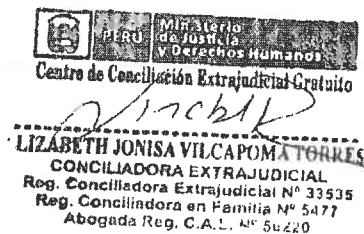 PERÚ
Ministerio
de Justicia
y Derechos Humanos
Centro de Conciliación Extrajudicial Gratuito
LIZABETH JONISA VILCAPOMA TORRES
CONCILIADORA EXTRAJUDICIAL
Reg. Conciliadora Extrajudicial Nº 33535
Reg. Conciliadora en Familia Nº 5477
Abogada Reg. C.A.L. Nº 56220